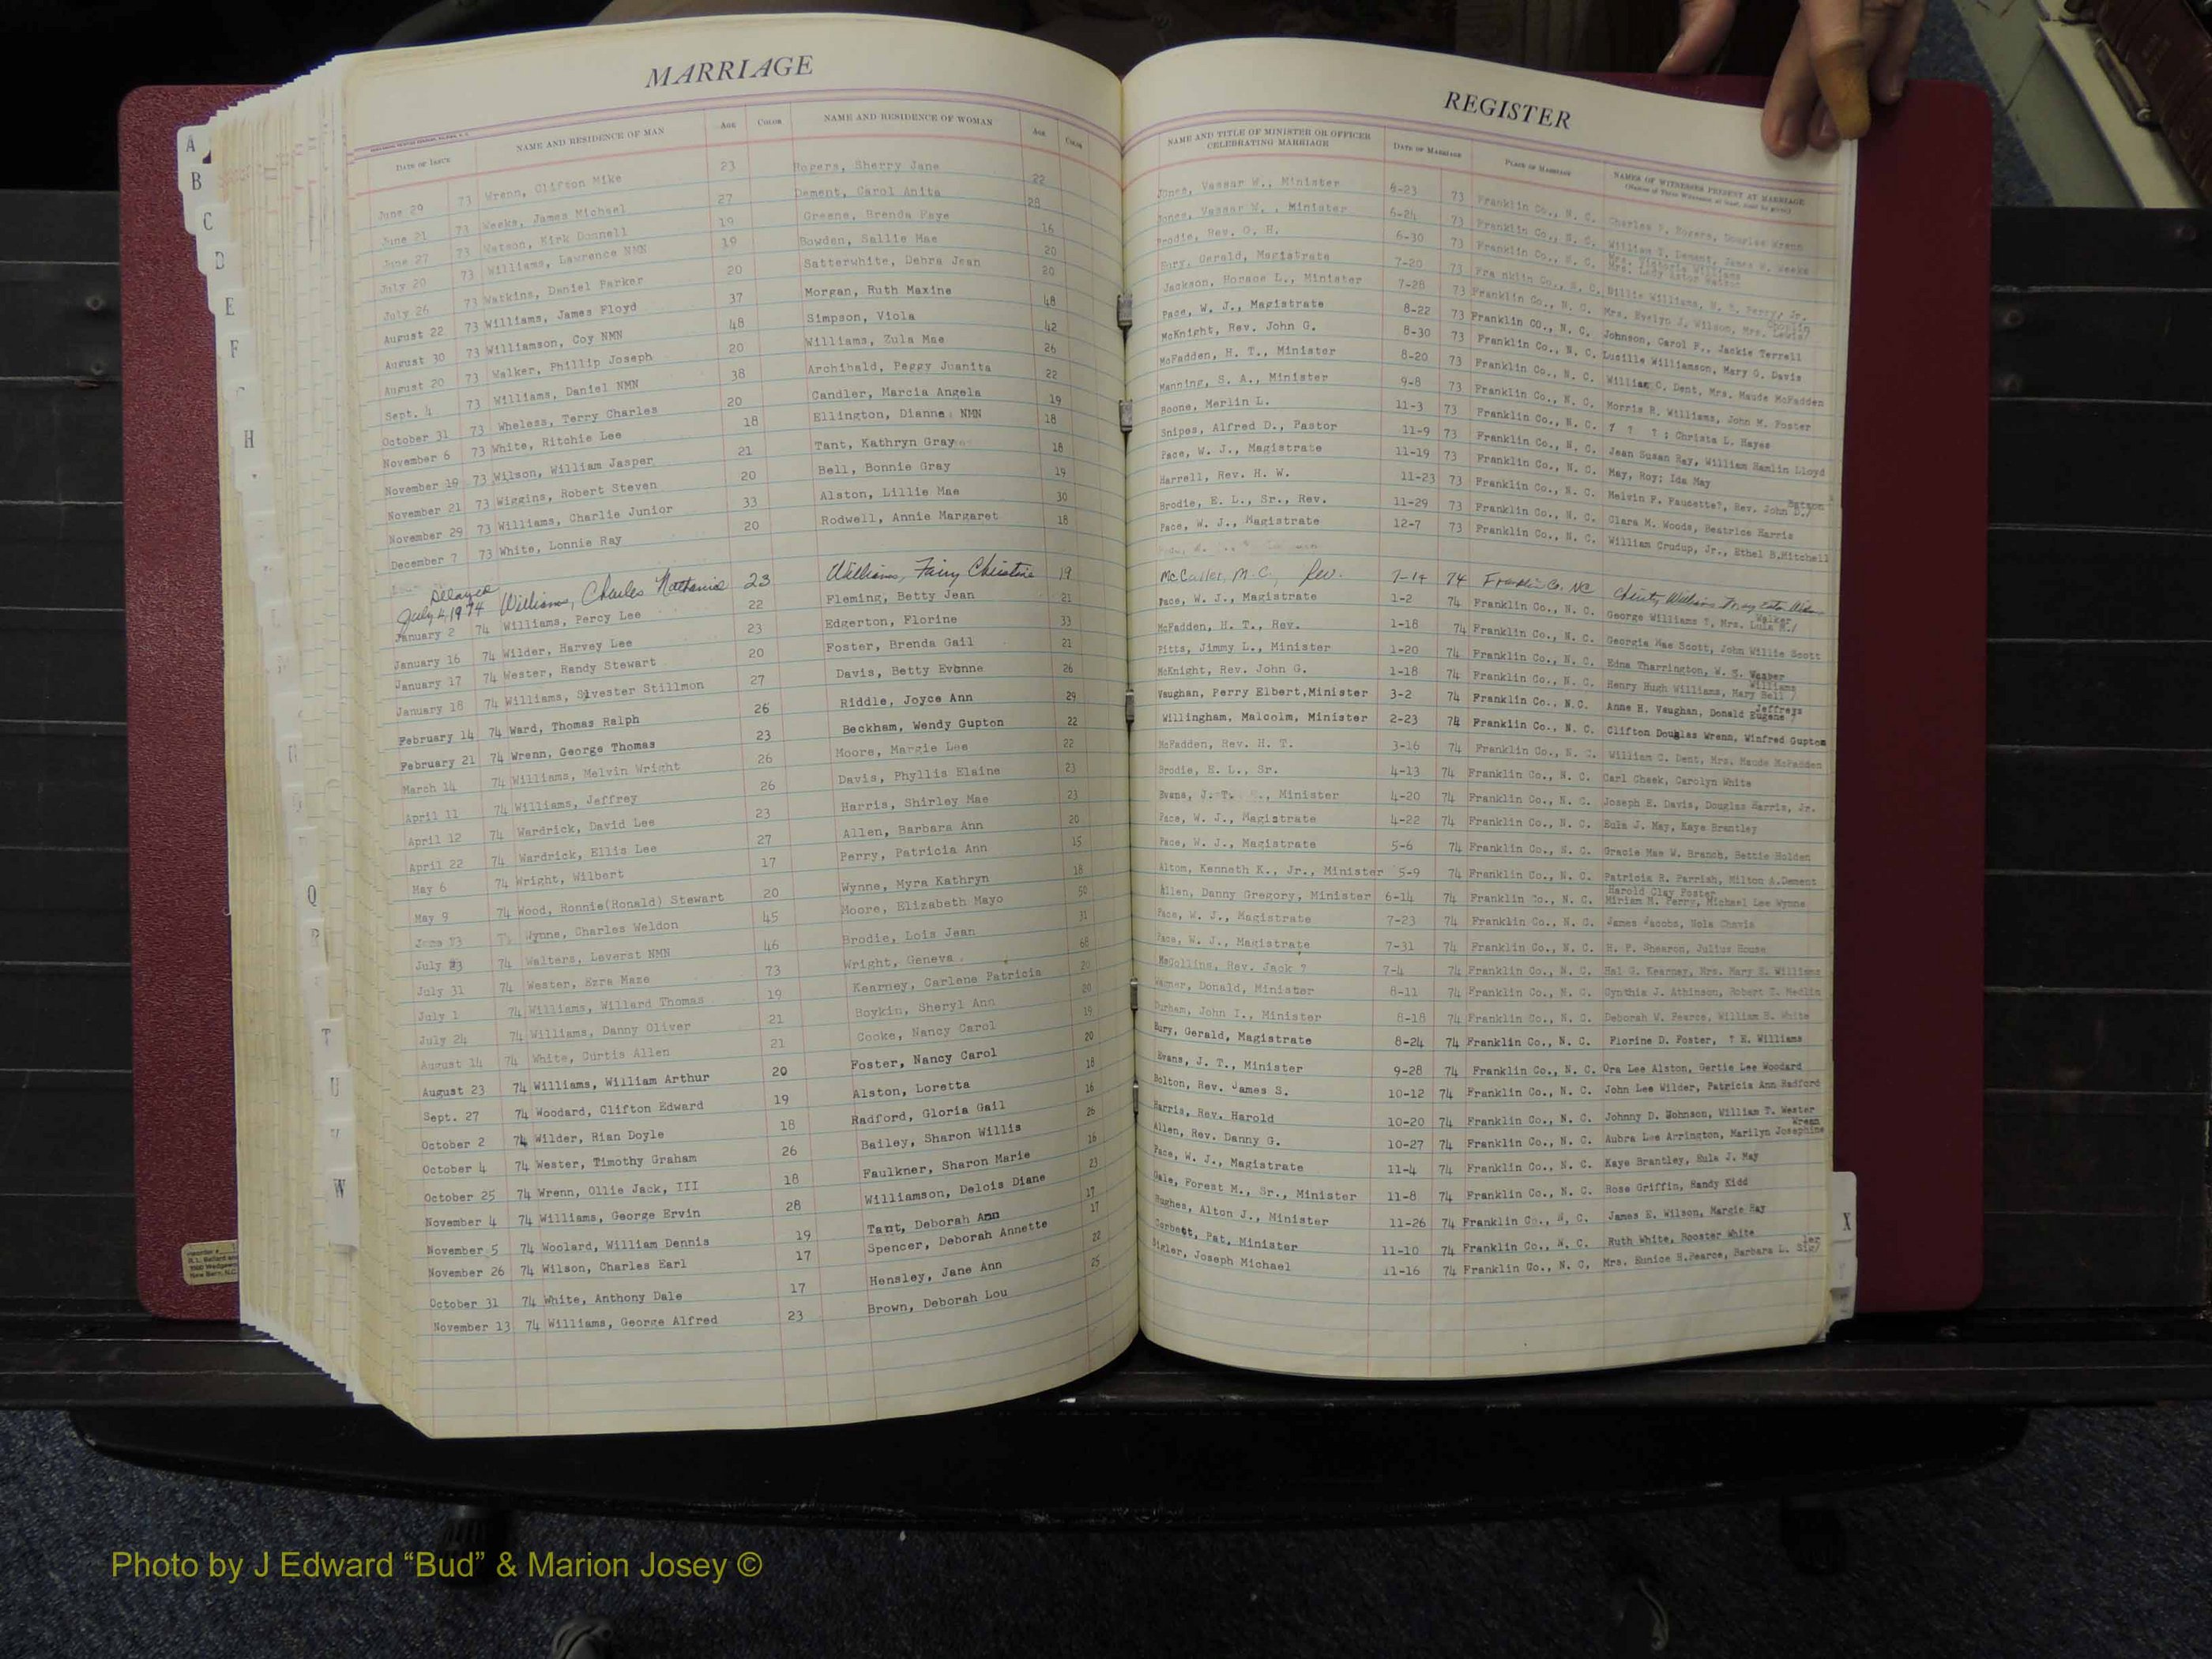 MARRIAGE
DATE OF ISSUE NAME AND RESIDENCE OF MAN AGE COLOR NAME AND RESIDENCE OF WOMAN AGE COLOR
June 29 73 Wrenn, Clifton Mike 23 Rogers, Sherry Jane 22
June 21 73 Weeks, James Michael 27 Dement, Carol Anita 28
June 27 73 Watson, Kirk Donnell 19 Greene, Brenda Faye 16
July 20 73 Williams, Lawrence NMN 19 Bowden, Sallie Mae 20
July 26 73 Watkins, Daniel Parker 20 Satterwhite, Debra Jean 20
August 22 73 Williams, James Floyd 37 Morgan, Ruth Maxine 48
August 30 73 Williamson, Coy NMN 48 Simpson, Viola 42
August 20 73 Walker, Phillip Joseph 20 Williams, Zula Mae 26
Sept. 4 73 Williams, Daniel NMN 38 Archibald, Peggy Juanita 22
October 31 73 Wheless, Terry Charles 20 Candler, Marcia Angela 19
November 6 73 White, Ritchie Lee 18 Ellington, Dianne NMN 18
November 19 73 Wilson, William Jasper 21 Tant, Kathryn Gray 18
November 21 73 Wiggins, Robert Steven 20 Bell, Bonnie Gray 19
November 29 73 Williams, Charlie Junior 33 Alston, Lillie Mae 30
December 7 73 White, Lonnie Ray 20 Rodwell, Annie Margaret 18
Delayed
July 4, 1974 Williams, Charles Nathaniel 23 Williams, Fairy Christine 19
January 2 74 Williams, Percy Lee 22 Fleming, Betty Jean 21
January 16 74 Wilder, Harvey Lee 23 Edgerton, Florine 33
January 17 74 Wester, Randy Stewart 20 Foster, Brenda Gail 21
January 18 74 Williams, Sylvester Stillmon 27 Davis, Betty Evonne 26
February 14 74 Ward, Thomas Ralph 26 Riddle, Joyce Ann 29
February 21 74 Wrenn, George Thomas 23 Beckham, Wendy Gupton 22
March 14 74 Williams, Melvin Wright 26 Moore, Margie Lee 22
April 11 74 Williams, Jeffrey 26 Davis, Phyllis Elaine 23
April 12 74 Wardrick, David Lee 23 Harris, Shirley Mae 23
April 22 74 Wardrick, Ellis Lee 27 Allen, Barbara Ann 20
May 6 74 Wright, Wilbert 17 Perry, Patricia Ann 15
May 9 74 Wood, Ronnie(Ronald) Stewart 20 Wynne, Myra Kathryn 18
Wynne, Charles Weldon 45 Moore, Elizabeth Mayo 50
July 23 74 Walters, Leverst NMN 46 Brodie, Lois Jean 31
July 31 74 Wester, Ezra Maze 73 Wright, Geneva 68
July 1 74 Williams, Willard Thomas 19 Kearney, Carlene Patricia 20
July 24 74 Williams, Danny Oliver 21 Boykin, Sheryl Ann 20
August 14 74 White, Curtis Allen 21 Cooke, Nancy Carol 19
August 23 74 Williams, William Arthur 20 Foster, Nancy Carol 20
Sept. 27 74 Woodard, Clifton Edward 19 Alston, Loretta 18
October 2 74 Wilder, Rian Doyle 18 Radford, Gloria Gail 16
October 4 74 Wester, Timothy Graham 26 Bailey, Sharon Willis 26
October 25 74 Wrenn, Ollie Jack, III 18 Faulkner, Sharon Marie 16
November 4 74 Williams, George Ervin 28 Williamson, Delois Diane 23
November 5 74 Woolard, William Dennis 19 Tant, Deborah Ann 17
November 26 74 Wilson, Charles Earl 17 Spencer, Deborah Annette 17
October 31 74 White, Anthony Dale 17 Hensley, Jane Ann 22
November 13 74 Williams, George Alfred 23 Brown, Deborah Lou 25
REGISTER
NAME AND TITLE OF MINISTER OR OFFICER CELEBRATING MARRIAGE DATE OF MARRIAGE PLACE OF MARRIAGE NAMES OF WITNESSES PRESENT AT MARRIAGE
Jones, Vassar W., Minister 6-23 73 Franklin Co., N. C. Charles Rogers, Douglas Wrenn
Jones, Vassar W., Minister 6-24 73 Franklin Co., N. C. William T. Dement, James W. Weeks
Brodie, Rev. O. H. 6-30 73 Franklin Co., N. C. Mrs. Victoria Williams
Bury, Gerald, Magistrate 7-20 73 Fra nklin Co., N. C. Billie Williams, Perry, Jr.
Jackson, Horace L., Minister 7-28 73 Franklin Co., N. C. Mrs. Evelyn J. Wilson, Mrs. Lewis/
Pace, W. J., Magistrate 8-22 73 Franklin Co., N. C. Johnson, Carol F., Jackie Terrell
McKnight, Rev. John G. 8-30 73 Franklin Co., N. C. Lucille Williamson, Mary O. Davis
McFadden, H. T., Minister 8-20 73 Franklin Co., N. C. William C. Dent, Mrs. Maude McFadden
Manning, S. A., Minister 9-8 73 Franklin Co., N. C. Morris R. Williams, John M. Foster
Boone, Merlin L. 11-3 73 Franklin Co., N. C. ? ? ? ; Christa L. Hayes
Snipes, Alfred D., Pastor 11-9 73 Franklin Co., N. C. Jean Susan Ray, William Hamlin Lloyd
Pace, W. J., Magistrate 11-19 73 Franklin Co., N. C. May, Roy; Ida May
Harrell, Rev. H. W. 11-23 73 Franklin Co., N. C. Melvin F. Faucette?, Rev. John D./
Brodie, E. L., Sr., Rev. 11-29 73 Franklin Co., N. C. Clara M. Woods, Beatrice Harris
Pace, W. J., Magistrate 12-7 73 Franklin Co., N. C. William Crudup, Jr., Ethel B.Mitchell
M. C., Rev. 7-14 74 Franklin Co, NC Christy Williams
Pace, W. J., Magistrate 1-2 74 Franklin Co., N. C. George Williams ?, Mrs. Lula M./ Walker
McFadden, H. T., Rev. 1-18 74 Franklin Co., N. C. Georgia Mae Scott, John Willie Scott
Pitts, Jimmy L., Minister 1-20 74 Franklin Co., N. C. Edna Tharrington, W. S. Wester
McKnight, Rev. John G. 1-18 74 Franklin Co., N. C. Henry Hugh Williams, Mary Bell / Williams
Vaughan, Perry Elbert,Minister 3-2 74 Franklin Co., N.C. Anne H. Vaughan, Donald Eugene / Jeffreys
Willingham, Malcolm, Minister 2-23 74 Franklin Co., N. C. Clifton Douglas Wrenn, Winfred Gupton
McFadden, Rev. H. T. 3-16 74 Franklin Co., N. C. William C. Dent, Mrs. Maude McFadden
Brodie, E. L., Sr. 4-13 74 Franklin Co., N. C. Carl Cheek, Carolyn White
Evans, J. T., Minister 4-20 74 Franklin Co., N. C. Joseph E. Davis, Douglas Harris, Jr.
Pace, W. J., Magistrate 4-22 74 Franklin Co., N. C. Eula J. May, Kaye Brantley
Pace, W. J., Magistrate 5-6 74 Franklin Co., N. C. Gracie Mae W. Branch, Bettie Holden
Altom, Kenneth K., Jr., Minister 5-9 74 Franklin Co., N. C. Patricia R. Parrish, Milton A.Dement
Allen, Danny Gregory, Minister 6-14 74 Franklin Co., N. C. Harold Clay Foster Miriam H. Perry, Michael Lee Wynne
Pace, W. J., Magistrate 7-23 74 Franklin Co., N. C. James Jacobs, Nola Chavis
Pace, W. J., Magistrate 7-31 74 Franklin Co., N. C. H. P. Shearon, Julius House
McCollins, Rev. Jack ? 7-4 74 Franklin Co., N. C. Hal G. Kearney, Mrs. Mary E. Williams
Warner, Donald, Minister 8-11 74 Franklin Co., N. C. Cynthia J. Athinson, Robert T. Medlin
Durham, John I., Minister 8-18 74 Franklin Co., N. C. Deborah W. Pearce, William B. White
Bury, Gerald, Magistrate 8-24 74 Franklin Co., N. C. Florine D. Foster, ? E. Williams
Evans, J. T., Minister 9-28 74 Franklin Co., N. C. Ora Lee Alston, Gertie Lee Woodard
Bolton, Rev. James S. 10-12 74 Franklin Co., N. C. John Lee Wilder, Patricia Ann Radford
Harris, Rev. Harold 10-20 74 Franklin Co., N. C. Johnny D. Johnson, William T. Wester
Allen, Rev. Danny G. 10-27 74 Franklin Co., N. C. Aubra Lee Arrington, Marilyn Josephine Wrenn
Pace, W. J., Magistrate 11-4 74 Franklin Co., N. C. Kaye Brantley, Eula J. May
Gale, Forest M., Sr., Minister 11-8 74 Franklin Co., N. C. Rose Griffin, Randy Kidd
Hughes, Alton J., Minister 11-26 74 Franklin Co., N. C. James E. Wilson, Margie Ray
Corbett, Pat, Minister 11-10 74 Franklin Co., N. C. Ruth White, Booster White
Sigler, Joseph Michael 11-16 74 Franklin Co., N. C. Mrs. Eunice H.Pearce, Barbara L. Sig/ler
A
B
C
D
E
F
H
Q
R
T
U
V
W
X
Photo by J Edward “Bud” & Marion Josey ©